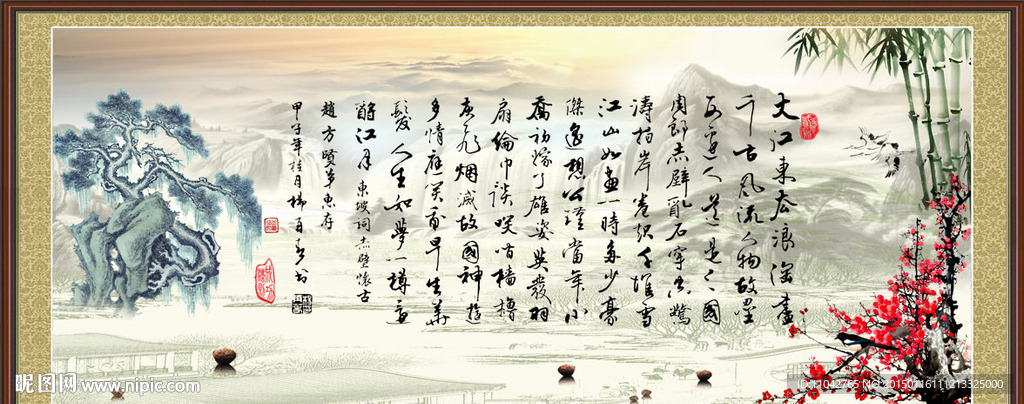 大江東去浪淘盡
千古風流人物故壘
西邊人道是三國
周郎赤壁亂石穿空驚
濤拍岸卷起千堆雪
江山如畫一時多少豪
傑遙想公瑾當年小
喬初嫁了雄姿英發羽
扇綸巾談笑間檣櫓
灰飛烟滅故國神遊
多情應笑我早生華
髮人生如夢一樽還
酹江月 東坡詞赤壁懷古
趙方賢弟惠存
甲子年桂月
昵图网 www.nipic.com
ID:11042765 NO:20150716111213325000